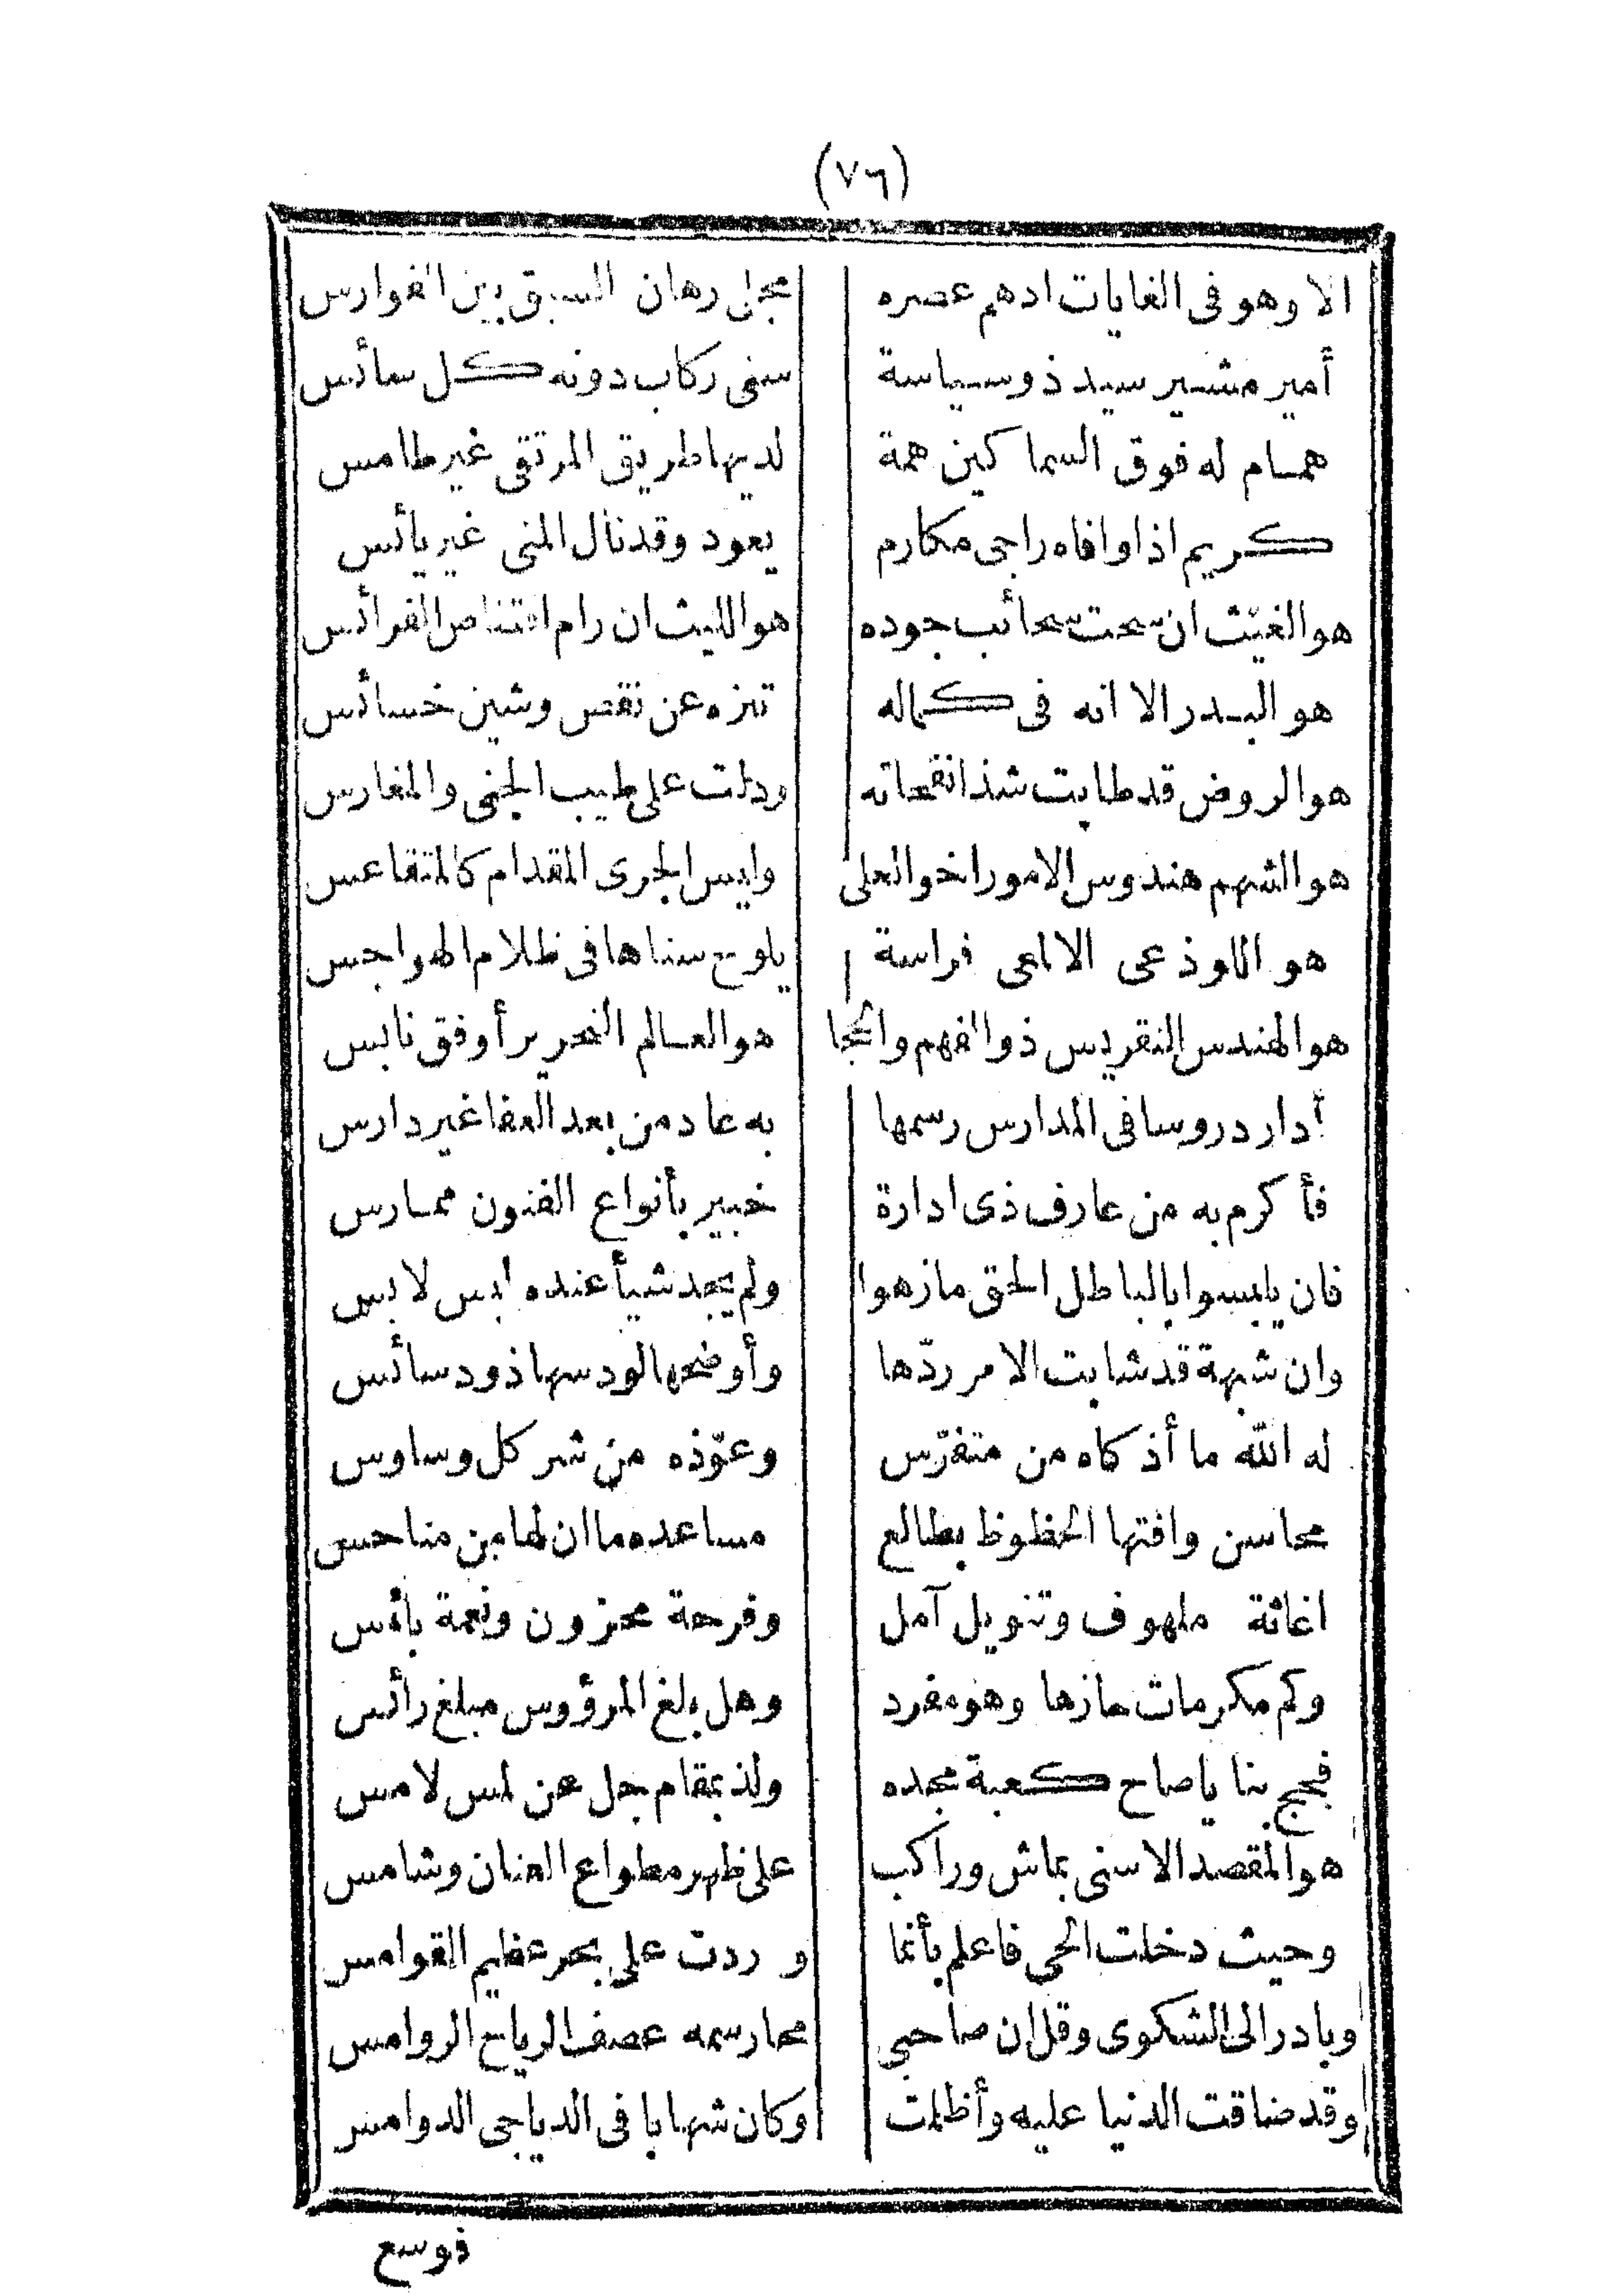 (٧٦)
الا وهو فى الغايات ادهم عصره مجلى رهان السبق بين الفوارس
أمير مشير سيد ذو سياسة سنى ركاب دونه كل سائس
همام له فوق السماكين همة لديها طريق المرتقى غير طامس
كريم اذا وافاه راجى مكارم يعود وقد نال المنى غير يائس
هو الغيث ان سحت سحائب جوده هو الليث ان رام اقتناص الفرائس
هو البدر الا انه فى كماله تنزه عن نقص وشين خسائس
هو الروض قد طابت شذا نفحاته ودلت على طيب الجنى والمغارس
هو الشهم هندوس الامور اخو العلى وليس الجرى المقدام كالمتقاعس
هو اللوذعى الالمعى فراسة يلوح سناها فى ظلام الهواجس
هو الهندس النقريس ذو الفهم والحجا هو العالم النحرير أوفق نابس
أدار دروسا فى المدارس رسمها به عاد من بعد العفا غير دارس
فأكرم به من عارف ذى ادارة خبير بأنواع الفنون ممارس
فان يلبسوا بالباطل الحق مازهوا ولم يجد شيأ عنده لبس لابس
وان شبهة قد شابت الامر ردّها وأوضحها لودسها ذو دسائس
له الله ما أذكاه من متفرّس وعوّذه من شر كل وساوس
محاسن وافتها الحظوظ بطالع مساعده ما ان لها من مناحس
اغاثة ملهوف وتنويل آمل وفرحة محزون ونعمة بائس
وكم مكرمات حازها وهو مفرد وهل بلغ المرؤوس مبلغ رائس
فحج بنا ياصاح كعبة مجده ولذ بمقام جل عن لمس لامس
هو المقصد الاسنى بماش وراكب على ظهر مطواع العنان وشامس
وحيث دخلت الحى فاعلم بأنما وردت على بحر عظيم القوامس
وبادر الى الشكوى وقل ان صاحبى محا رسمه عصف الرياح الروامس
وقد ضاقت الدنيا عليه وأظلمت وكان شهابا فى الدياجى الدوامس
فوسع